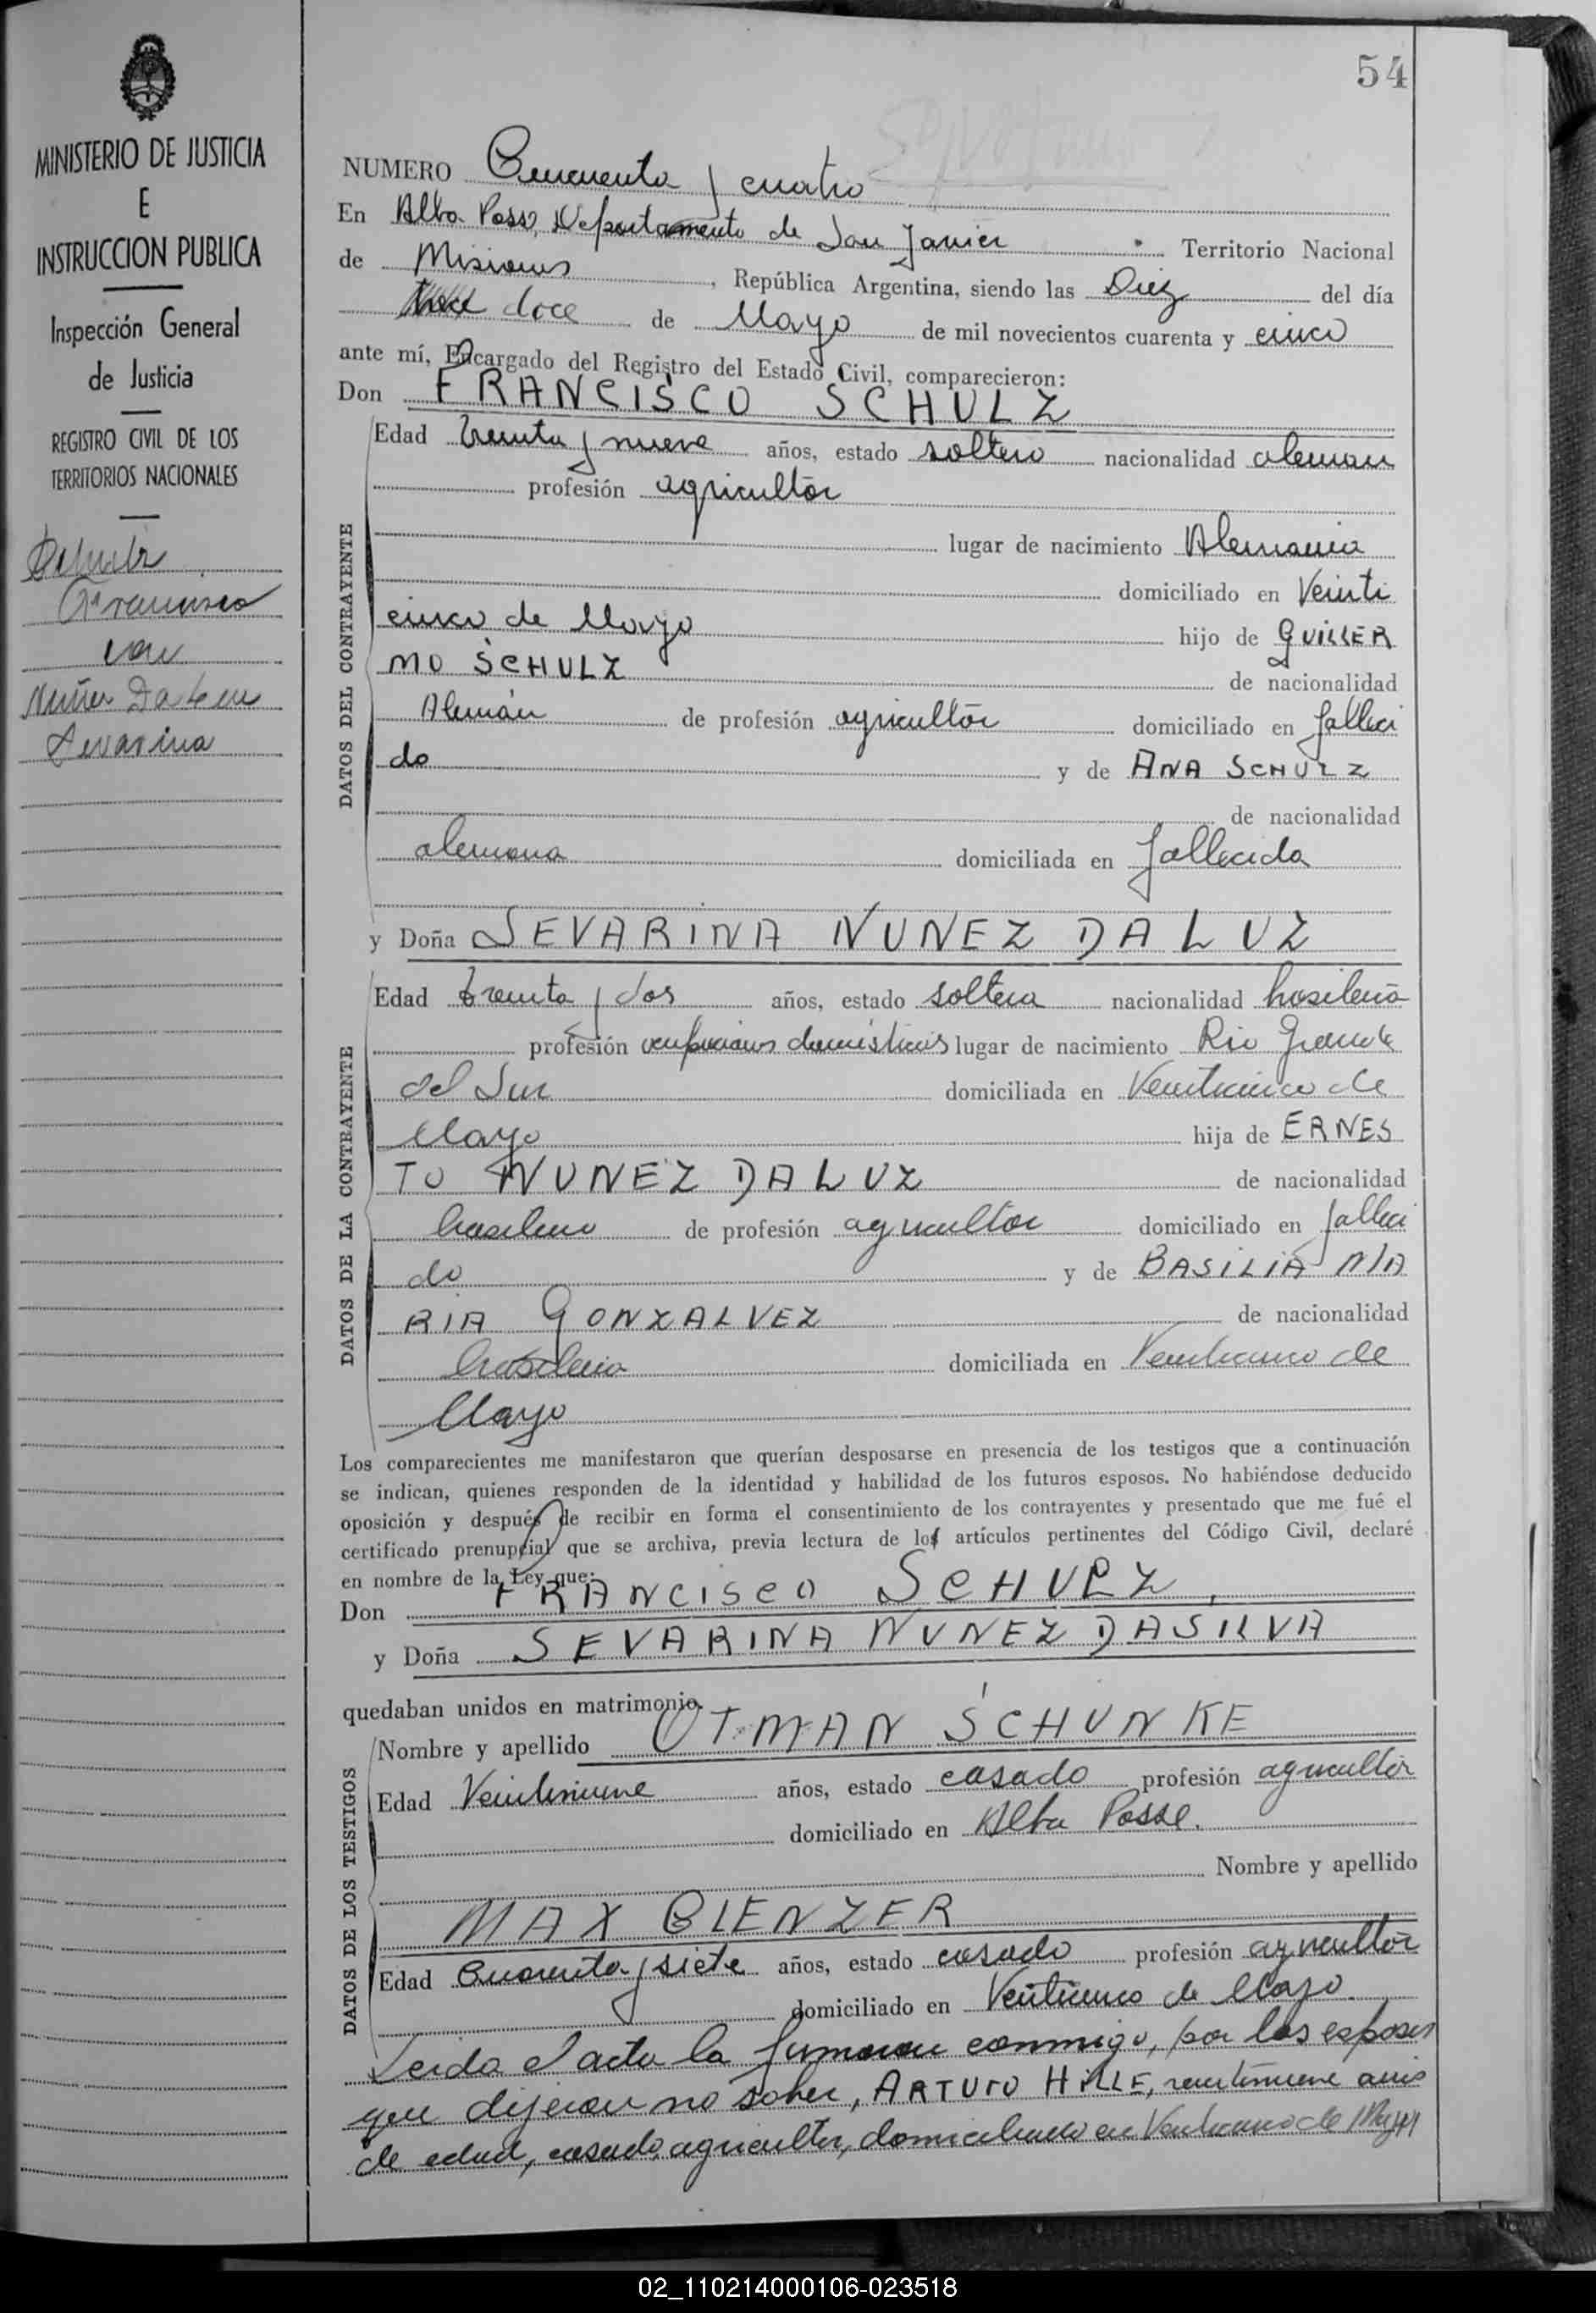 54
MINISTERIO DE JUSTICIA
E
INSTRUCCION PUBLICA
Inspección General
de Justicia
REGISTRO CIVIL DE LOS
TERRITORIOS NACIONALES
Francisco
con
Nuñez Da
Sevarina
NUMERO Cincuenta y cuatro
En Alba Posse, Departamento de San Javier Territorio Nacional
de Misiones, República Argentina, siendo las Diez del día
doce de Mayo de mil novecientos cuarenta y cinco
ante mí, Encargado del Registro del Estado Civil, comparecieron:
Don FRANCISCO SCHULZ
DATOS DEL CONTRAYENTE
Edad treinta y nueve años, estado soltero nacionalidad aleman
profesión agricultor
lugar de nacimiento Alemania
domiciliado en Veinti
cinco de Mayo hijo de GUILLER
MO SCHULZ de nacionalidad
Alemán de profesión agricultor domiciliado en falleci
do y de ANA SCHULZ
de nacionalidad
alemana domiciliada en fallecida
y Doña SEVARINA NUNEZ DA LUZ
DATOS DE LA CONTRAYENTE
Edad treinta y dos años, estado soltera nacionalidad brasileña
profesión ocupaciones domésticas lugar de nacimiento Rio Grande
del Sur domiciliada en Veinticinco de
Mayo hija de ERNES
TO NUNEZ DA LUZ de nacionalidad
brasilero de profesión agricultor domiciliado en falleci
do y de BASILIA MA
RIA GONZALVEZ de nacionalidad
brasilera domiciliada en Veinticinco de
Mayo
Los comparecientes me manifestaron que querían desposarse en presencia de los testigos que a continuación
se indican, quienes responden de la identidad y habilidad de los futuros esposos. No habiéndose deducido
oposición y después de recibir en forma el consentimiento de los contrayentes y presentado que me fué el
certificado prenupcial que se archiva, previa lectura de los artículos pertinentes del Código Civil, declaré
en nombre de la Ley que:
Don FRANCISCO SCHULZ,
y Doña SEVARINA NUNEZ DASILVA
quedaban unidos en matrimonio.
DATOS DE LOS TESTIGOS
Nombre y apellido OTMAN SCHUNKE
Edad Veintinueve años, estado casado profesión agricultor
domiciliado en Alba Posse.
Nombre y apellido
MAX BLENZER
Edad Cuarenta y siete años, estado casado profesión agricultor
domiciliado en Veinticinco de Mayo.
Leida el acta la firmaron conmigo, por los esposos
que dijeron no saber, ARTURO HILLE, veintinueve años
de edad, casado, agricultor, domiciliado en Veinticinco de Mayo
02_110214000106-023518